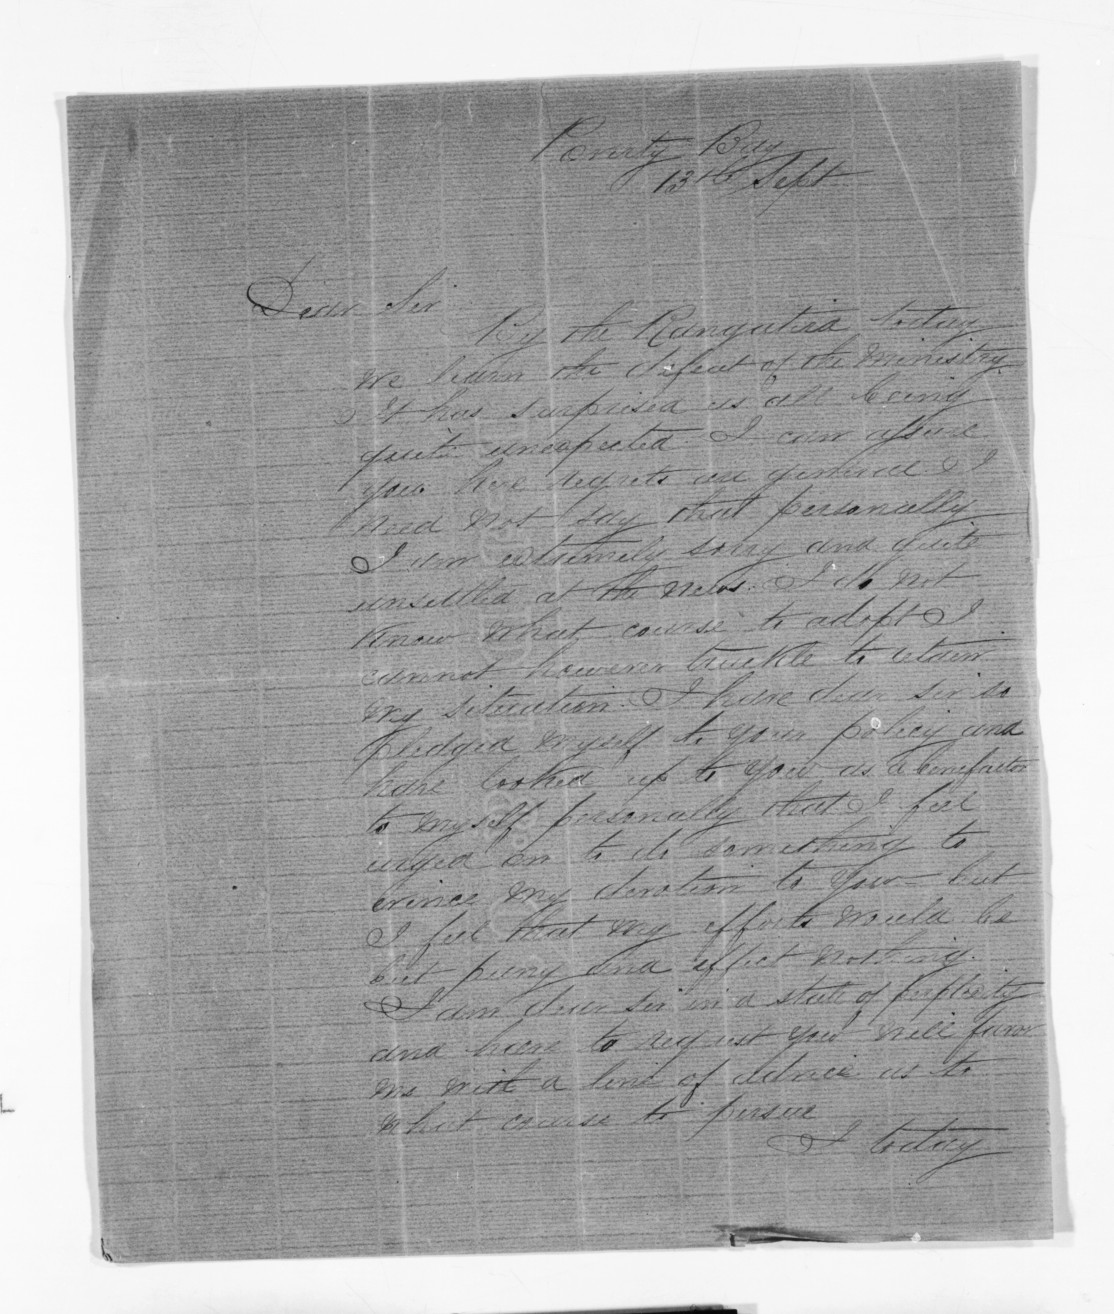 Poverty Bay
13th Sept
Dear Sir
By the Rangatira today
we learn the defeat of the Ministry.
It has surprised us all being
quite unexpected. I can assure
you here regrets are general I
need not say that personally
I am extremely sorry and quite
unsettled at the news. I do not
know what course to adopt I
cannot however truckle to retain
my situation. I have dear sir so
pledged myself to your policy and
have looked up to you as a benefactor
to myself personally that I feel
urged on to do something to
evince my devotion to you – but
I feel that my efforts would be
but puny and effect nothing.
I am dear sir in a state of perplexity
and have to request you will favor
me with a line of advice as to
what course to persue
I today